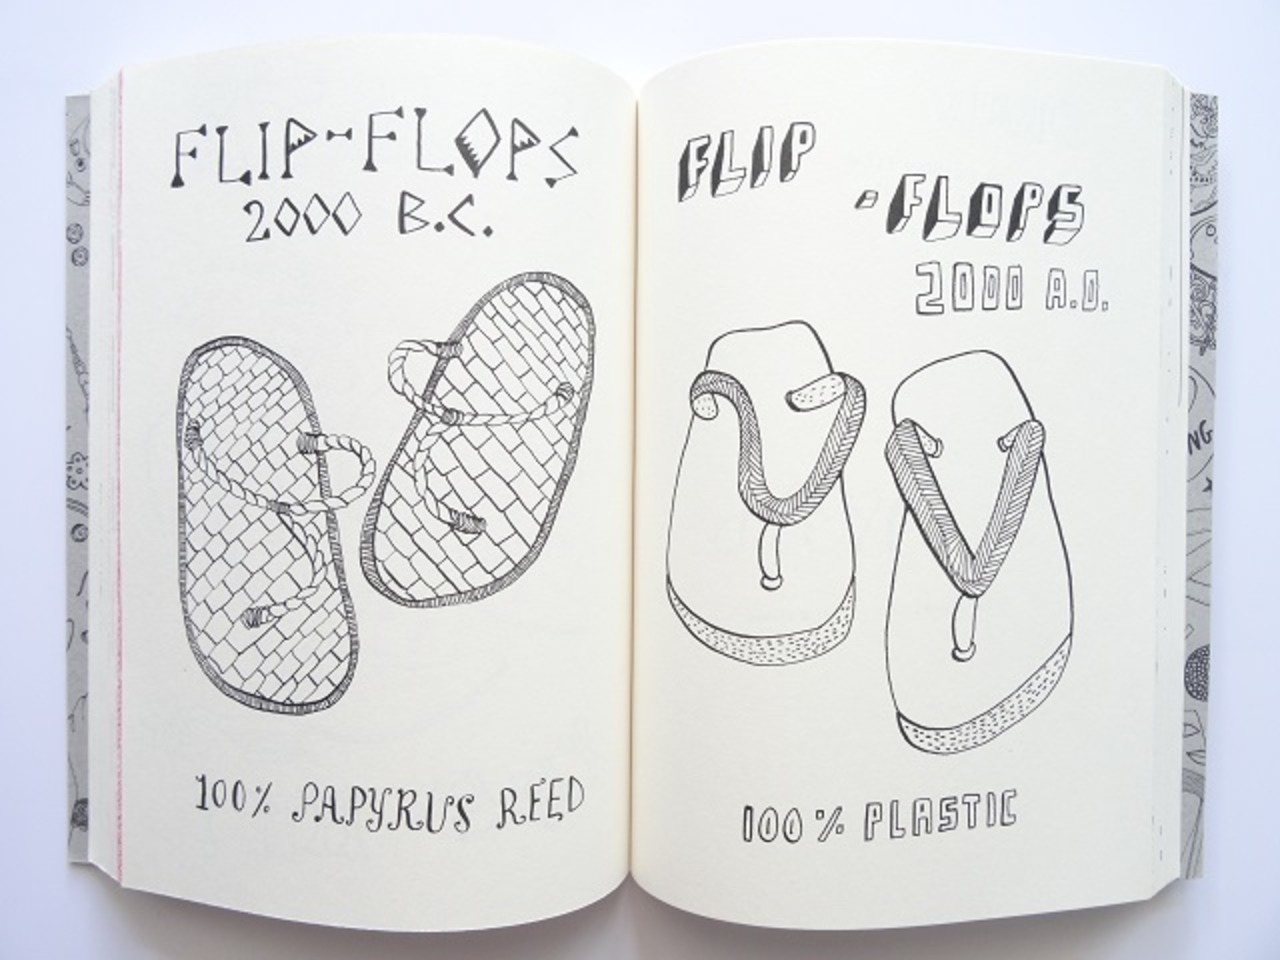 FLIP-FLOPS
2000 B.C.
100% PAPYRUS REED
FLIP
-FLOPS
2000 A.D.
100% PLASTIC
NG